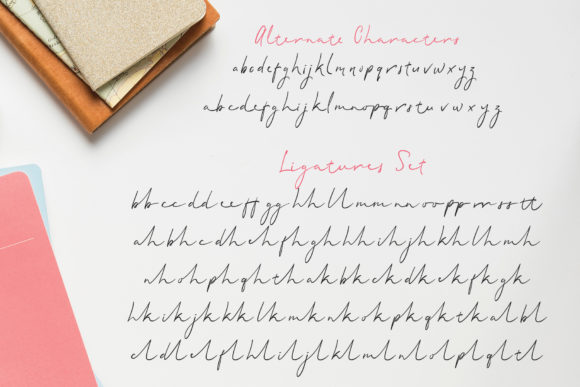 Alternate Characters
abcdefghijklmnopqrstuvwxyz
abcdefghijklmnopqrstuvwxyz
Ligatures Set
bb cc dd ee ff gg hh ll mm nn oo pp rr ss tt
ah bh ch dh eh fh gh hh ih jh kh lh mh
nh oh ph qh th ak bk ck dk ek fk gk
hk ik jk kk lk mk nk ok pk qk tk al bl
cl dl el fl hl il jl kl ml nl ol pl ql tl